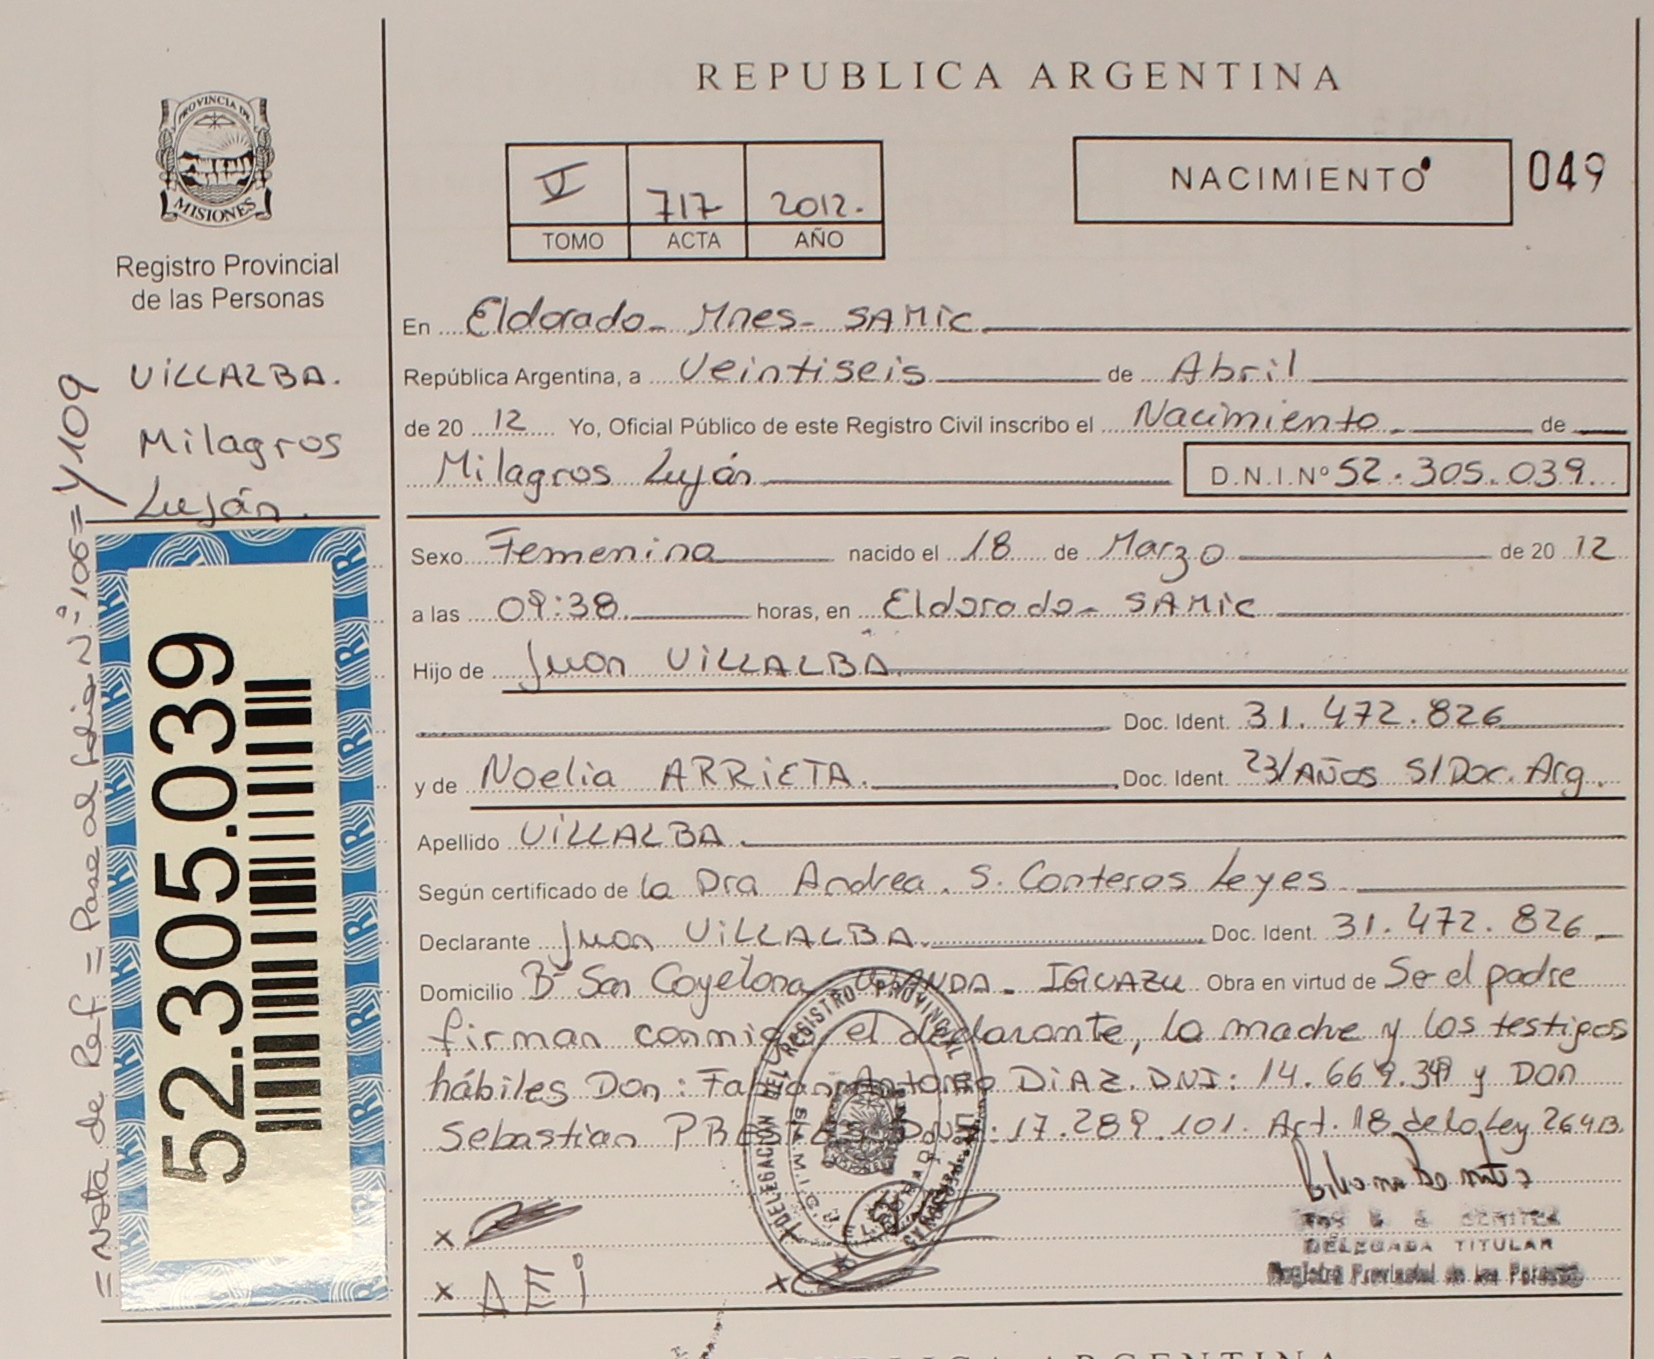 REPUBLICA ARGENTINA
PROVINCIA DE
MISIONES
Registro Provincial
de las Personas
V 717 2012.
TOMO ACTA AÑO
NACIMIENTO 049
VILLALBA.
Milagros
Luján.
= Nota de Ref. = Pase al folio Nº 106 = Y109
52.305.039
En Eldorado - Mnes - SAMIC
República Argentina, a Veintiseis de Abril
de 20 12 Yo, Oficial Público de este Registro Civil inscribo el Nacimiento de
Milagros Luján D.N.I. Nº 52.305.039
Sexo Femenina nacido el 18 de Marzo de 20 12
a las 09:38 horas, en Eldorado - SAMIC
Hijo de Juan VILLALBA
Doc. Ident. 31.472.826
y de Noelia ARRIETA. Doc. Ident. 23/AÑOS S/Doc. Arg.
Apellido VILLALBA.
Según certificado de la Dra Andrea. S. Conteros Leyes
Declarante Juan VILLALBA. Doc. Ident. 31.472.826
Domicilio Bº San Cayetano - IGUAZU Obra en virtud de Ser el padre
firman conmigo, el declarante, la madre y los testigos
hábiles Don: Fabian Antonio DIAZ. DNI: 14.669. y DON
Sebastian DNI: 17.289.101. Art. 18 de la Ley 26413.
DELEGACION DEL REGISTRO PROVINCIAL
x
x AEI x
BENITEZ
DELEGADA TITULAR
Registro Provincial de las Personas